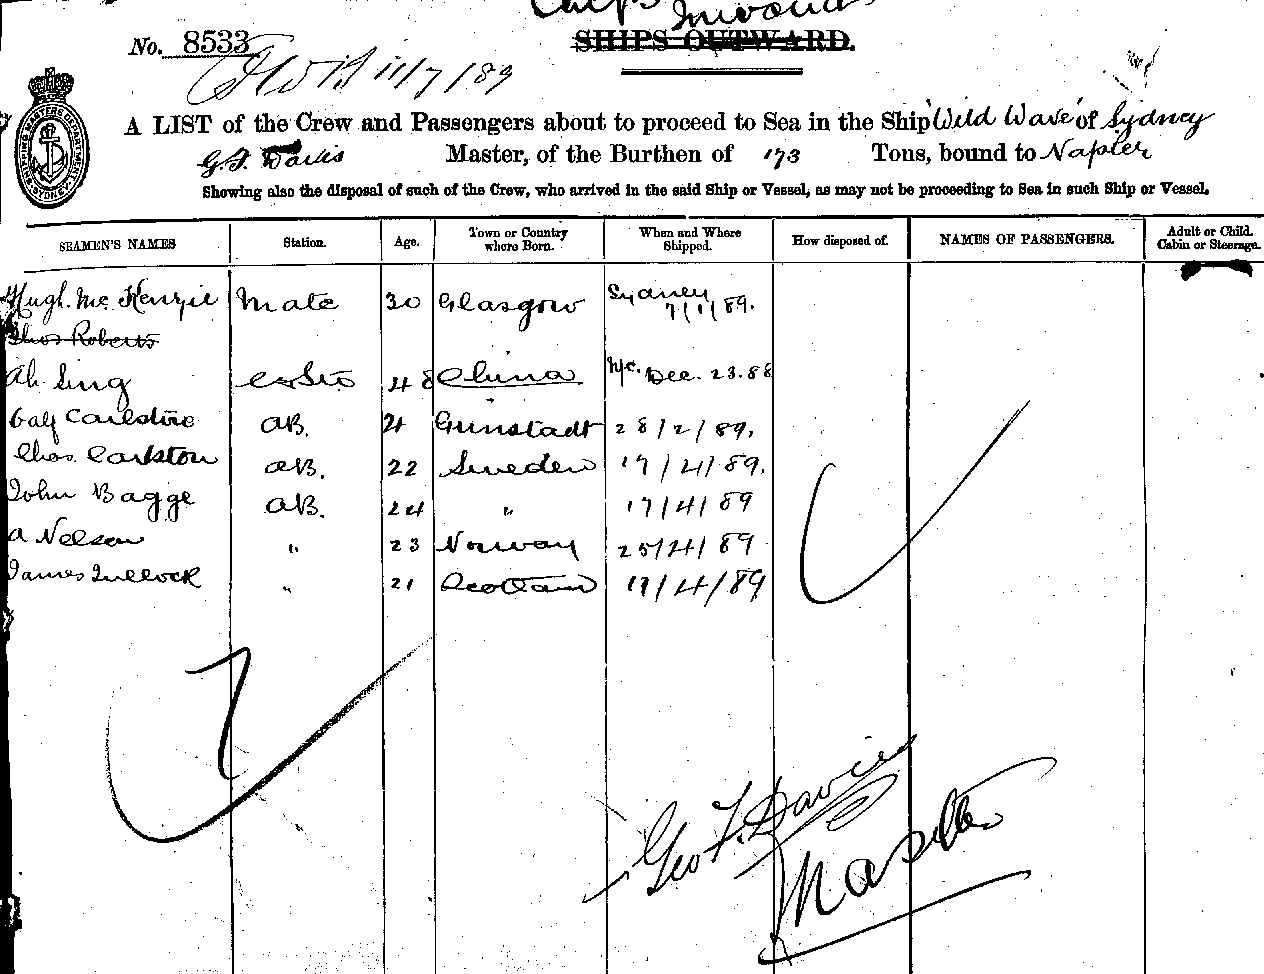 Ships Inwards
No. 8533
SHIPS OUTWARD.
11/7/89
A LIST of the Crew and Passengers about to proceed to Sea in the Ship "Wild Wave" of Sydney
G. F. Davis Master, of the Burthen of 173 Tons, bound to Napier
Showing also the disposal of such of the Crew, who arrived in the said Ship or Vessel, as may not be proceeding to Sea in such Ship or Vessel.
SEAMEN'S NAMES Station. Age. Town or Country where Born. When and Where Shipped. How disposed of. NAMES OF PASSENGERS. Adult or Child. Cabin or Steerage.
Hugh Mc Kenzie Mate 30 Glasgow Sydney 7/1/89.
Thos Roberts
Ah. Sing 48 China N/C. Dec. 23. 88
AB. 21 28/2/89.
Chas. Carlston AB. 22 Sweden 17/4/89.
John Bagge AB. 24 " 17/4/89
A Nelson " 23 Norway 25/4/89
James Tullock " 21 Scotland 17/4/89
7
Geo F. Davies
Master